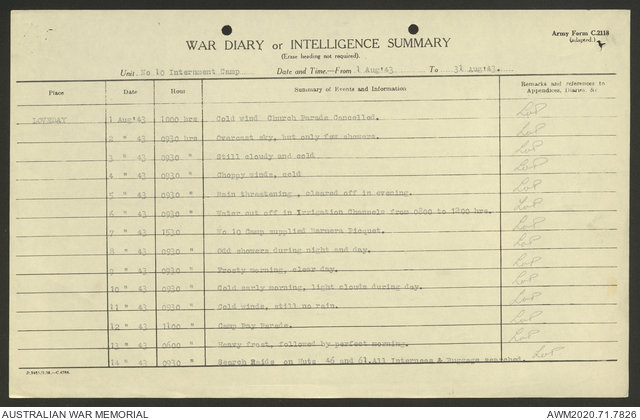 Army Form C.2118
(adapted.)
WAR DIARY or INTELLIGENCE SUMMARY
(Erase heading not required).
Unit. No 10 Internment Camp Date and Time.—From 1 Aug'43 To 31 Aug'43.
Place Date Hour Summary of Events and Information Remarks and references to Appendices, Diaries, &c.
LOVEDAY 1 Aug'43 1000 hrs Cold wind Church Parade Cancelled.
2 " 43 0930 hrs Overcast sky, but only few showers.
3 " 43 0930 " Still cloudy and cold
4 " 43 0930 " Choppy winds, cold
5 " 43 0930 " Rain threatening, cleared off in evening.
6 " 43 0930 " Water cut off in Irrigation Channels from 0800 to 1200 hrs.
7 " 43 1530 No 10 Camp supplied Barmera Picquet.
8 " 43 0930 " Odd showers during night and day.
9 " 43 0930 " Frosty morning, clear day.
10 " 43 0930 " Cold early morning, light clouds during day.
11 " 43 0930 " Cold winds, still no rain.
12 " 43 1100 " Camp Pay Parade.
13 " 43 0600 " Heavy frost, followed by perfect morning.
14 " 43 0930 " Search Raids on Huts 46 and 61. All Internees & Luggage searched.
AUSTRALIAN WAR MEMORIAL AWM2020.71.7826